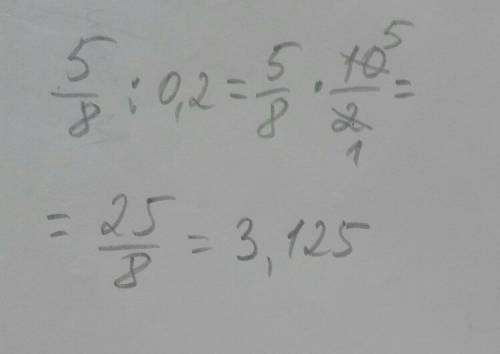 5/8 : 0,2 = 5/8 · 10 5/2 1 =
= 25/8 = 3,125